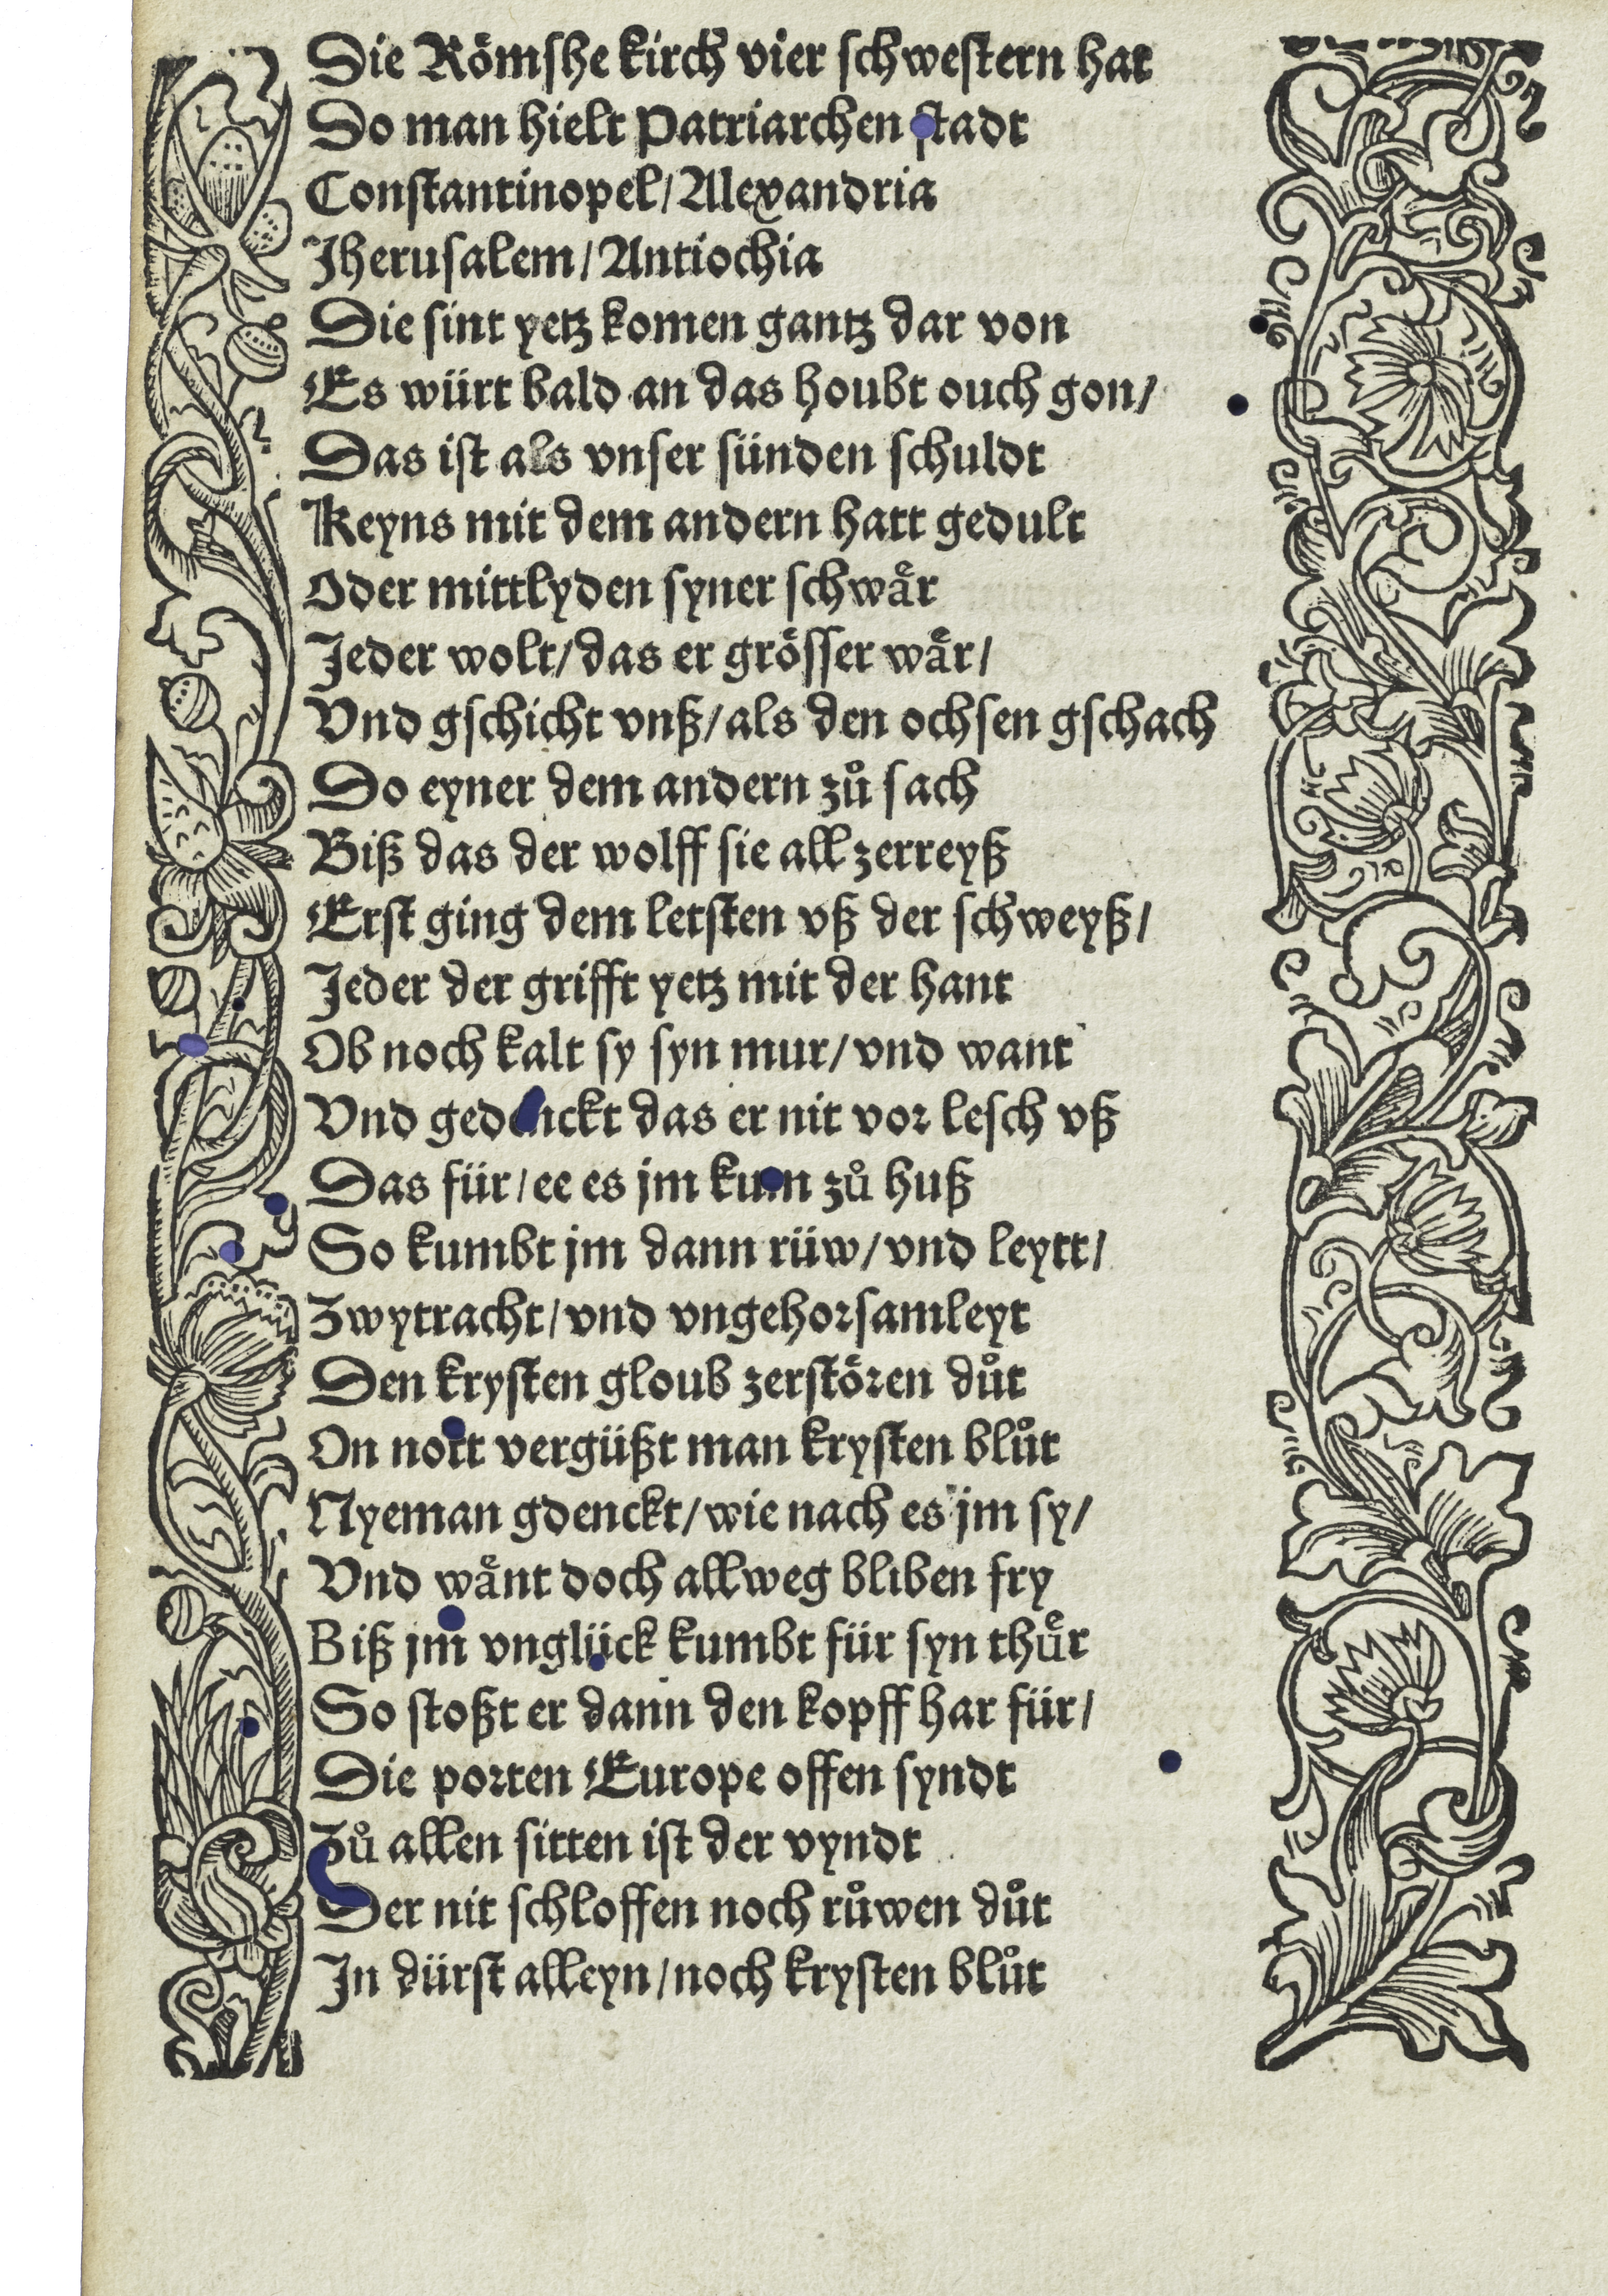 Die Roͤmshe kirch vier schwestern hat
Do man hielt Patriarchen stadt
Constantinopel/Alexandria
Jherusalem/Antiochia
Die sint yetz komen gantz dar von
Es würt bald an das houbt ouch gon/
Das ist als vnser sünden schuldt
Keyns mit dem andern hatt gedult
Oder mittlyden syner schwaͤr
Jeder wolt/das er groͤsser waͤr/
Vnd gschicht vnß/als den ochsen gschach
Do eyner dem andern zuͦ sach
Biß das der wolff sie all zerreyß
Erst ging dem letsten vß der schweyß/
Jeder der grifft yetz mit der hant
Ob noch kalt sy syn mur/vnd want
Vnd gedenckt das er nit vor lesch vß
Das für/ee es jm kum zuͦ huß
So kumbt jm dann rüw/vnd leytt/
Zwytracht/vnd vngehorsamleyt
Den krysten gloub zerstoͤren duͦt
On nott vergüßt man krysten bluͦt
Nyeman gdenckt/wie nach es jm sy/
Vnd waͤnt doch allweg bliben fry
Biß jm vnglück kumbt für syn thuͤr
So stoßt er dann den kopff har für/
Die porten Europe offen syndt
Zuͦ allen sitten ist der vyndt
Der nit schloffen noch ruͦwen duͦt
In dürst alleyn/noch krysten bluͦt